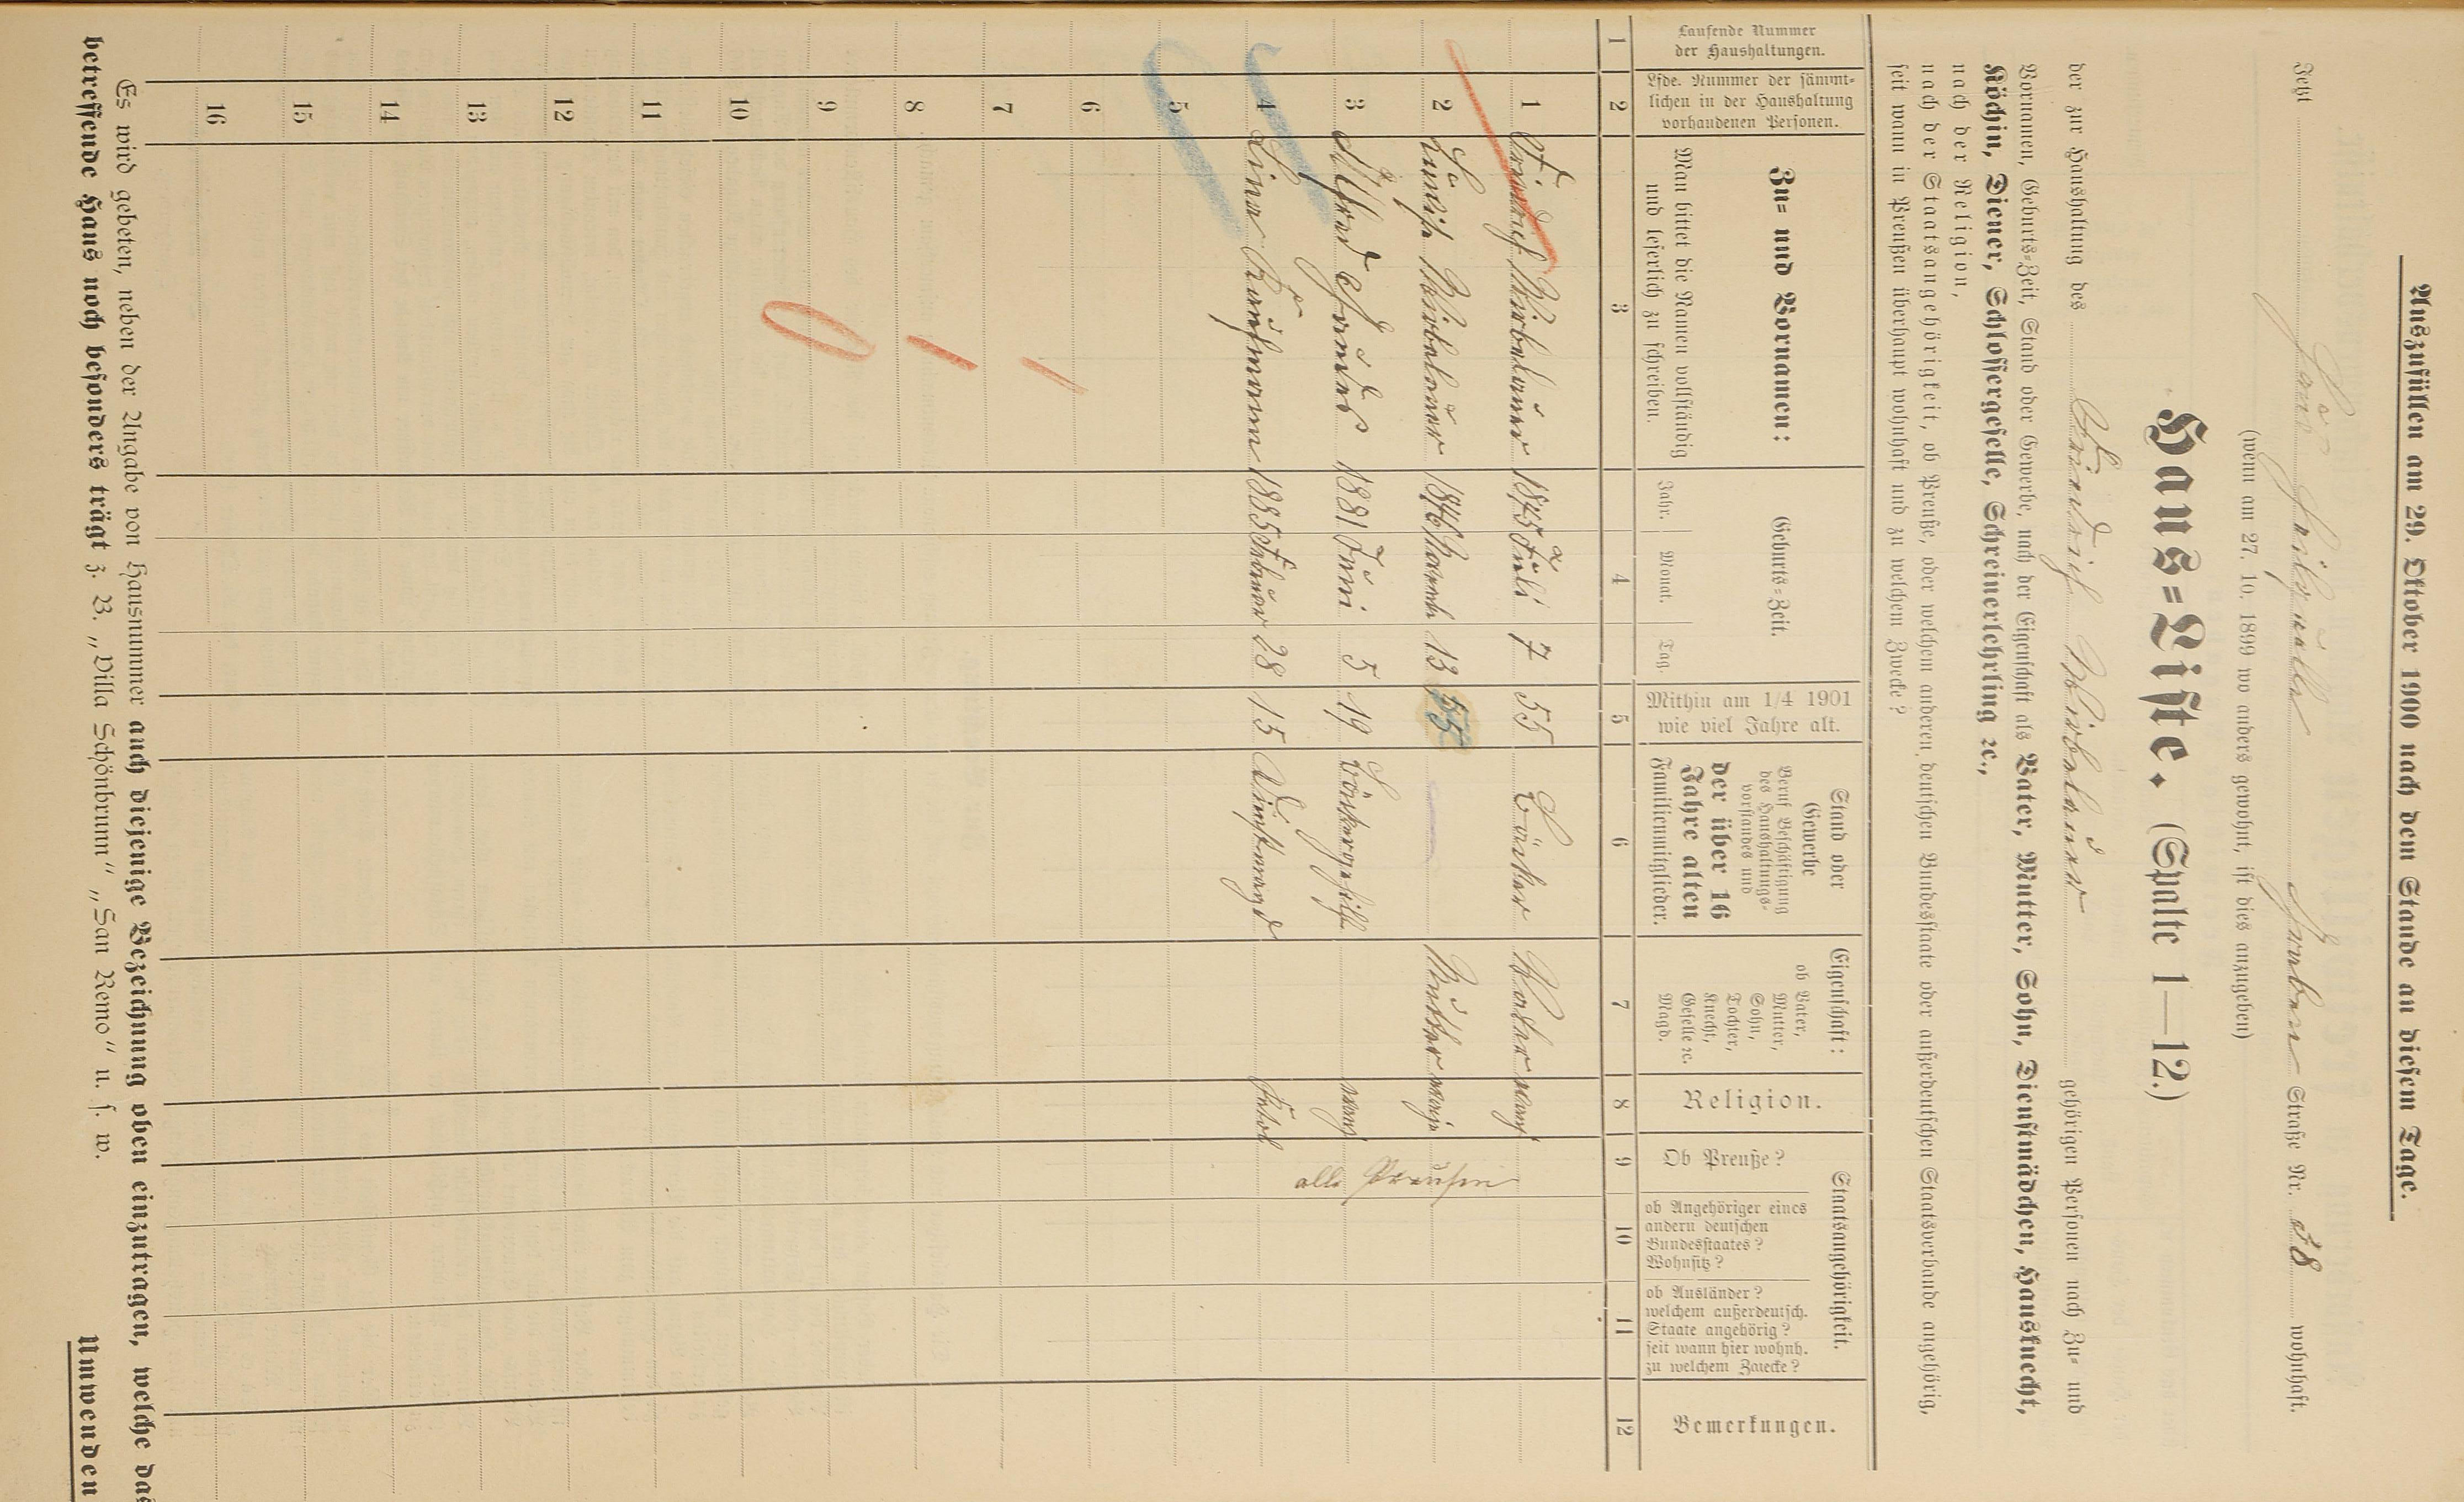 Auszufüllen am 29. Oktober 1900 nach dem Stande an diesem Tage.
Jetzt Straße Nr. 38 wohnhaft.
(wenn am 27. 10. 1899 wo anders gewohnt, ist dies anzugeben)
Haus=Liste. (Spalte 1—12.)
der zur Haushaltung des Friedrich gehörigen Personen nach Zu= und
Vornamen, Geburts=Zeit, Stand oder Gewerbe, nach der Eigenschaft als Vater, Mutter, Sohn, Dienstmädchen, Hausknecht,
Köchin, Diener, Schlossergeselle, Schreinerlehrling ꝛc.,
nach der Religion,
nach der Staatsangehörigkeit, ob Preuße, oder welchem anderen deutschen Bundesstaate oder außerdeutschen Staatsverbande angehörig,
seit wann in Preußen überhaupt wohnhaft und zu welchem Zwecke?
Laufende Nummer
der Haushaltungen.
Lfde. Nummer der sämmt=
lichen in der Haushaltung
vorhandenen Personen.
Zu= und Vornamen:
Man bittet die Namen vollständig
und leserlich zu schreiben.
Geburts=Zeit.
Jahr. Monat. Tag.
Mithin am 1/4 1901
wie viel Jahre alt.
Stand oder
Gewerbe
Beruf Beschäftigung
des Haushaltungs=
vorstandes und
der über 16
Jahre alten
Familienmitglieder.
Eigenschaft:
ob Vater,
Mutter,
Sohn,
Tochter,
Knecht,
Geselle ꝛc.
Magd.
Religion.
Staatsangehörigkeit.
Ob Preuße?
ob Angehöriger eines
andern deutschen
Bundesstaates?
Wohnsitz?
ob Ausländer?
welchem außerdeutsch.
Staate angehörig?
seit wann hier wohnh.
zu welchem Zwecke?
Bemerkungen.
1 2 3 4 5 6 7 8 9 10 11 12
1 Friedrich 1845 Juli 7 55 Bäcker Vater evang
2 1846 13 55 Mutter evang
3 Alfred 1881 Juni 5 19 Bäckergeselle evang
4 Lina 1885 Februar 28 15 Dienstmagd Kathol
alle Preußen
5
6
7
8
9
10
11
12
13
14
15
16
Es wird gebeten, neben der Angabe von Hausnummer auch diejenige Bezeichnung oben einzutragen, welche das
betreffende Haus noch besonders trägt z. B. „Villa Schönbrunn" „San Remo" u. s. w.
Umwenden